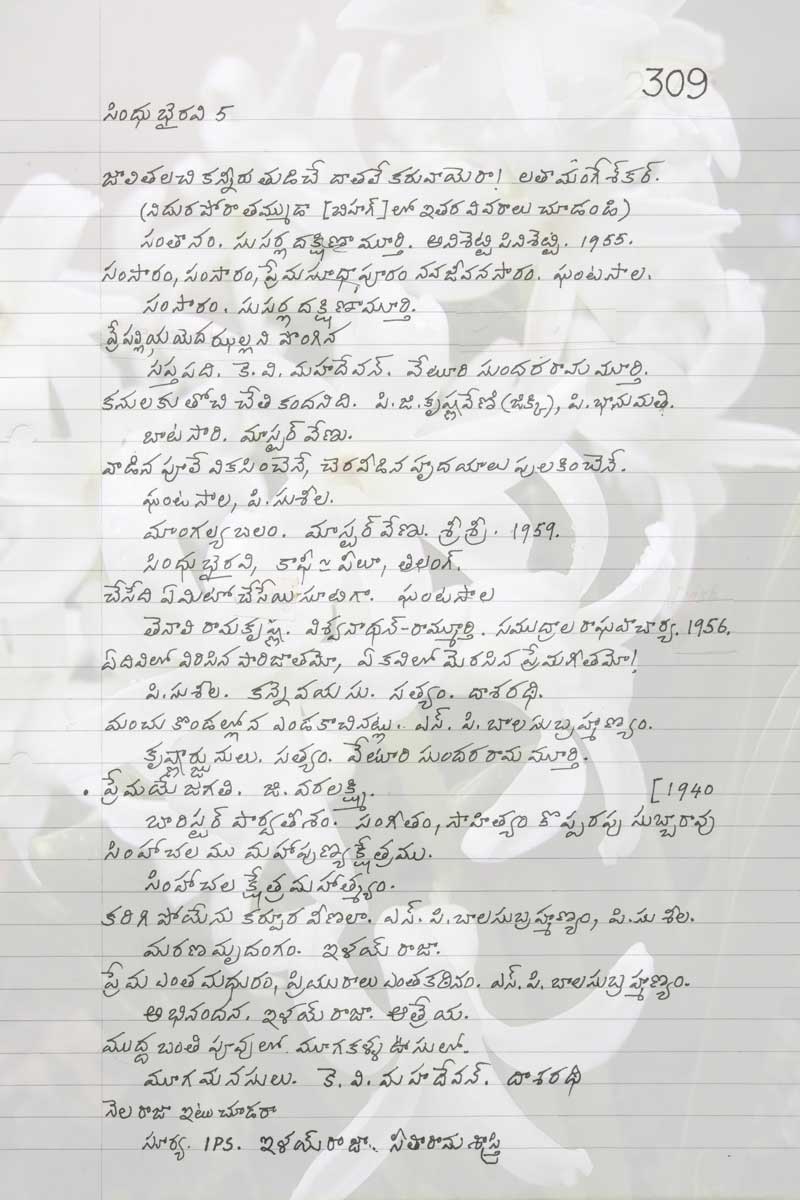 309
సింధు భైరవి 5
జాలి తలచి కన్నీరు తుడిచే దాతవే కరువాయెరా! లతా మంగేశ్కర్.
(నిదుర పోరా తమ్ముడా [బిహాగ్] లో ఇతర వివరాలు చూడండి)
సంతానం. సుసర్ల దక్షిణా మూర్తి. అనిశెట్టి పినిశెట్టి. 1955.
సంసారం, సంసారం, ప్రేమ సుధా పూరం నవజీవన సారం. ఘంటసాల.
సంసారం. సుసర్ల దక్షిణామూర్తి.
వ్రేపల్లియ యెద ఝల్లని పొంగిన
సప్తపది. కె. వి. మహదేవన్. వేటూరి సుందరరామ మూర్తి.
కనులకు తోచి చేతి కందనిది. పి. జి. కృష్ణవేణి (జిక్కి), పి. భానుమతి.
బాటసారి. మాస్టర్ వేణు.
వాడిన పూలే వికసించెనే, చెర వీడిన హృదయాలు పులకించెనే.
ఘంటసాల, పి. సుశీల.
మాంగల్య బలం. మాస్టర్ వేణు. శ్రీ శ్రీ. 1959.
సింధు భైరవి, కాఫీ ~ పీలూ, తిలంగ్.
చేసేది ఏమిటో చేసేయి సూటిగా. ఘంటసాల
తెనాలి రామకృష్ణ. విశ్వనాథన్-రామ్మూర్తి. సముద్రాల రాఘవాచార్య. 1956.
ఏ దివిలో విరిసిన పారిజాతమో, ఏ కవిలో మెరసిన ప్రేమగీతమో!
పి. సుశీల. కన్నె వయసు. సత్యం. దాశరథి.
మంచు కొండల్లోన ఎండ కాచినట్లు. ఎస్. పి. బాలసుబ్రహ్మణ్యం.
కృష్ణార్జునులు. సత్యం. వేటూరి సుందర రామ మూర్తి.
. ప్రేమయే జగతి. జి. వరలక్ష్మి. [1940
బారిస్టర్ పార్వతీశం. సంగీతం, సాహిత్యం కొప్పరపు సుబ్బారావు
సింహాచలము మహాపుణ్య క్షేత్రము.
సింహాచల క్షేత్ర మహాత్మ్యం.
కరిగి పోయేను కర్పూర వీణలా. ఎస్. పి. బాలసుబ్రహ్మణ్యం, పి. సుశీల.
మరణ మృదంగం. ఇళయ్ రాజా.
ప్రేమ ఎంత మధురం, ప్రియురాలు ఎంత కఠినం. ఎస్. పి. బాలసుబ్రహ్మణ్యం.
అభినందన. ఇళయ్ రాజా. ఆత్రేయ.
ముద్ద బంతి పూవులో మూగకళ్ళు ఊసులో.
మూగమనసులు. కె. వి. మహదేవన్. దాశరథి
నెల రాజా ఇటు చూడరా
సూర్య. IPS. ఇళయ్ రాజా. సీతారామ శాస్త్రి